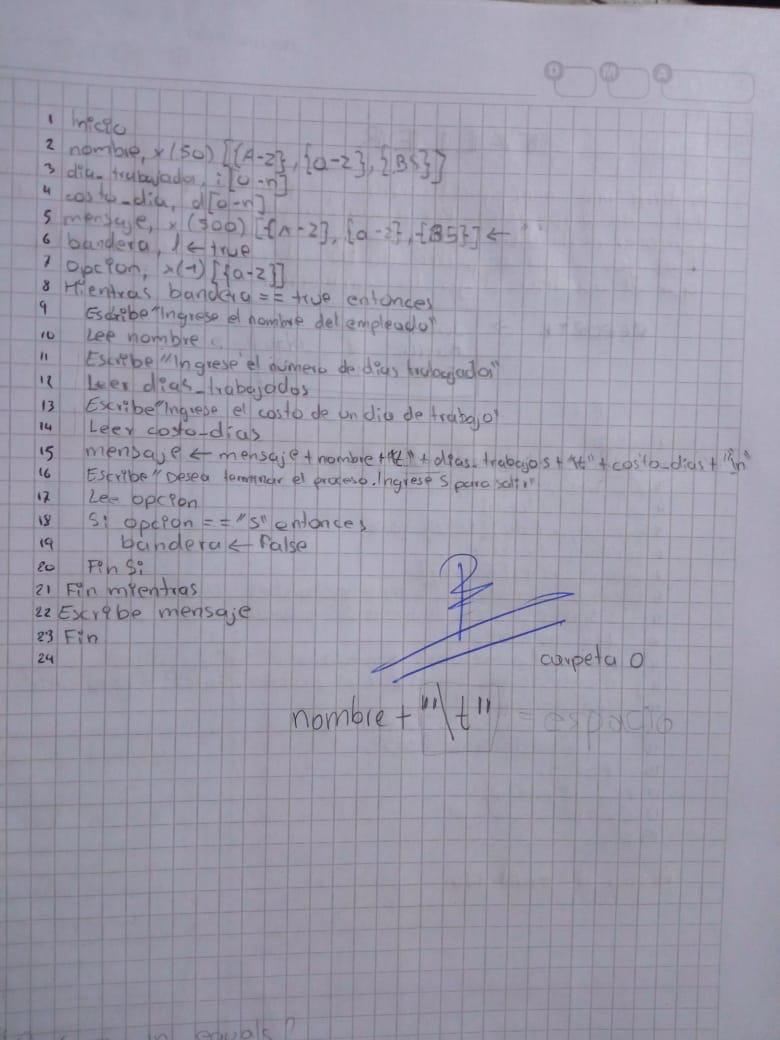 D M A
1 Inicio
2 nombre, x(50) [{A-Z}, {a-z}, {BS}]
3 dia_trabajada, i[0-n]
4 costo_dia, d[0-n]
5 mensaje, x(500) [{A-Z}, {a-z}, {BS}] ←
6 bandera, l ← true
7 opcion, x(1) [{a-z}]
8 Mientras bandera == true entonces
9 Escribe "Ingrese el nombre del empleado"
10 Lee nombre
11 Escribe "Ingrese el numero de dias trabajados"
12 Leer dias_trabajados
13 Escribe "Ingrese el costo de un dia de trabajo"
14 Leer costo_dias
15 mensaje ← mensaje + nombre + "\t" + dias_trabajos + "\t" + costo_dias + "\n"
16 Escribe "Desea terminar el proceso. Ingrese S para salir"
17 Lee opcion
18 Si opcion == "S" entonces
19 bandera ← False
20 Fin Si
21 Fin mientras
22 Escribe mensaje
23 Fin
24
carpeta 0
nombre + "\t" = espacio
equals?